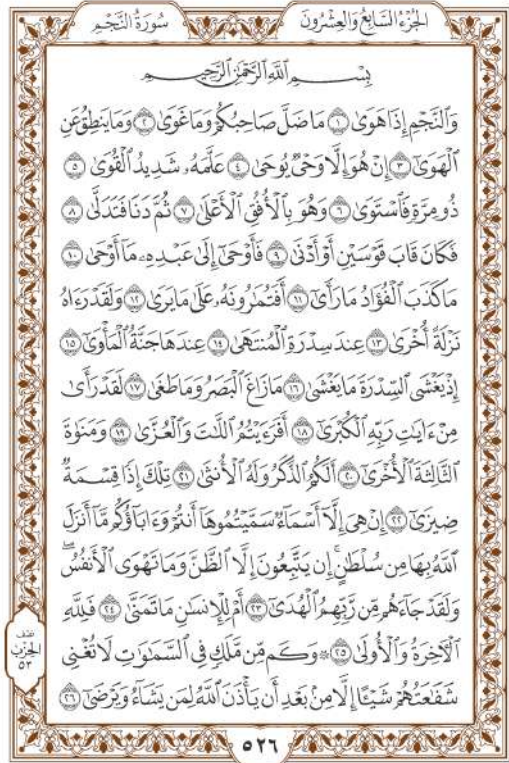 الجُزْءُ السَّابِعُ وَالعِشْرُونَ
سُورَةُ النَّجْمِ
بِسْمِ ٱللَّهِ ٱلرَّحْمَٰنِ ٱلرَّحِيمِ
وَٱلنَّجْمِ إِذَا هَوَىٰ ١ مَا ضَلَّ صَاحِبُكُمْ وَمَا غَوَىٰ ٢ وَمَا يَنطِقُ عَنِ
ٱلْهَوَىٰٓ ٣ إِنْ هُوَ إِلَّا وَحْىٌ يُوحَىٰ ٤ عَلَّمَهُۥ شَدِيدُ ٱلْقُوَىٰ ٥
ذُو مِرَّةٍ فَٱسْتَوَىٰ ٦ وَهُوَ بِٱلْأُفُقِ ٱلْأَعْلَىٰ ٧ ثُمَّ دَنَا فَتَدَلَّىٰ ٨
فَكَانَ قَابَ قَوْسَيْنِ أَوْ أَدْنَىٰ ٩ فَأَوْحَىٰٓ إِلَىٰ عَبْدِهِۦ مَآ أَوْحَىٰ ١٠
مَا كَذَبَ ٱلْفُؤَادُ مَا رَأَىٰٓ ١١ أَفَتُمَٰرُونَهُۥ عَلَىٰ مَا يَرَىٰ ١٢ وَلَقَدْ رَءَاهُ
نَزْلَةً أُخْرَىٰ ١٣ عِندَ سِدْرَةِ ٱلْمُنتَهَىٰ ١٤ عِندَهَا جَنَّةُ ٱلْمَأْوَىٰٓ ١٥
إِذْ يَغْشَى ٱلسِّدْرَةَ مَا يَغْشَىٰ ١٦ مَا زَاغَ ٱلْبَصَرُ وَمَا طَغَىٰ ١٧ لَقَدْ رَأَىٰ
مِنْ ءَايَٰتِ رَبِّهِ ٱلْكُبْرَىٰٓ ١٨ أَفَرَءَيْتُمُ ٱللَّٰتَ وَٱلْعُزَّىٰ ١٩ وَمَنَوٰةَ
ٱلثَّالِثَةَ ٱلْأُخْرَىٰٓ ٢٠ أَلَكُمُ ٱلذَّكَرُ وَلَهُ ٱلْأُنثَىٰ ٢١ تِلْكَ إِذًا قِسْمَةٌ
ضِيزَىٰٓ ٢٢ إِنْ هِىَ إِلَّآ أَسْمَآءٌ سَمَّيْتُمُوهَآ أَنتُمْ وَءَابَآؤُكُم مَّآ أَنزَلَ
ٱللَّهُ بِهَا مِن سُلْطَٰنٍ ۚ إِن يَتَّبِعُونَ إِلَّا ٱلظَّنَّ وَمَا تَهْوَى ٱلْأَنفُسُ ۖ
وَلَقَدْ جَآءَهُم مِّن رَّبِّهِمُ ٱلْهُدَىٰٓ ٢٣ أَمْ لِلْإِنسَٰنِ مَا تَمَنَّىٰ ٢٤ فَلِلَّهِ
ٱلْءَاخِرَةُ وَٱلْأُولَىٰ ٢٥ ۞ وَكَم مِّن مَّلَكٍ فِى ٱلسَّمَٰوَٰتِ لَا تُغْنِى
شَفَٰعَتُهُمْ شَيْـًٔا إِلَّا مِنۢ بَعْدِ أَن يَأْذَنَ ٱللَّهُ لِمَن يَشَآءُ وَيَرْضَىٰٓ ٢٦
نصف
الحزب
٥٣
٥٢٦